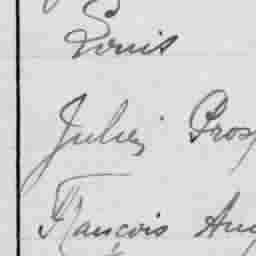 Louis
Julien Pros
François Aug